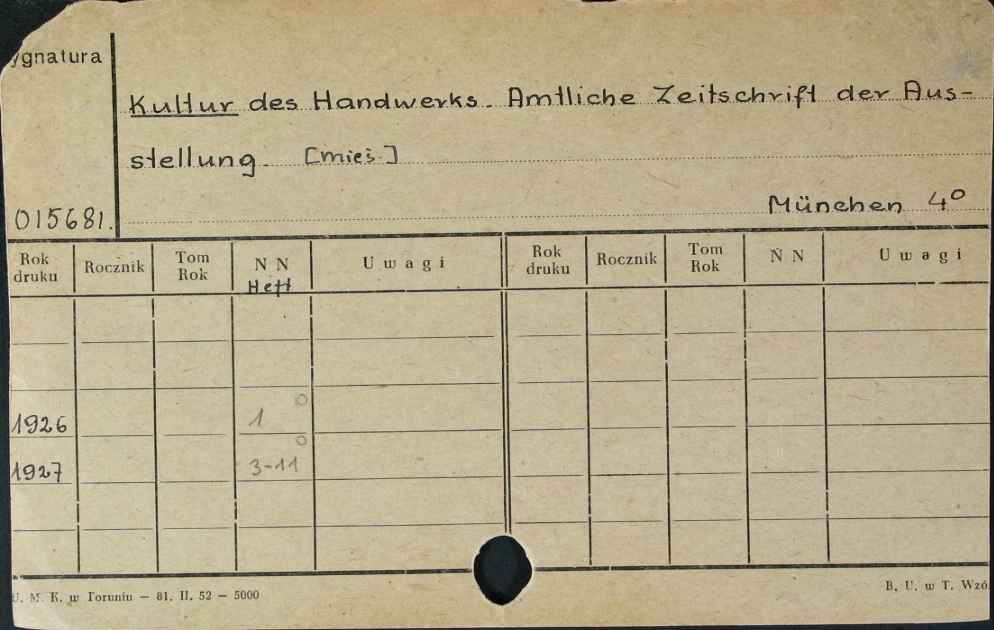 ygnatura
Kultur des Handwerks. Amtliche Zeitschrift der Aus-
stellung. [mies.]
015681.
München 4°
Rok druku Rocznik Tom Rok N N Heft Uwagi Rok druku Rocznik Tom Rok N N Uwagi
1926 1 o
1927 3-11 o
U. M. K. w Toruniu — 81. II. 52 — 5000
B. U. w T. Wzó